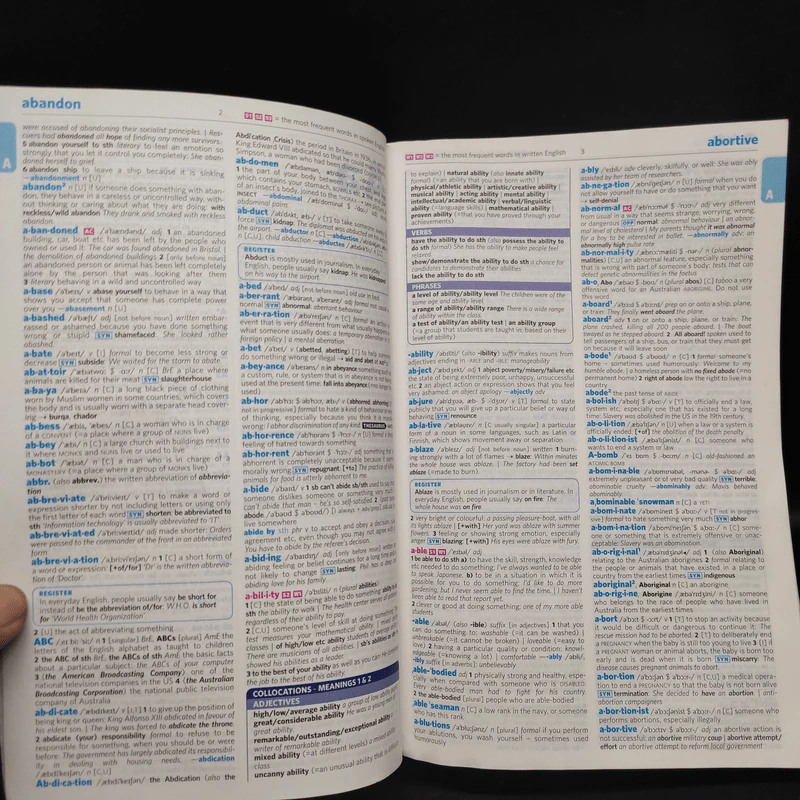 abandon
2
S1 S2 S3 = the most frequent words in spoken English
A
were accused of abandoning their socialist principles. | Res-
cuers had abandoned all hope of finding any more survivors.
5 abandon yourself to sth literary to feel an emotion so
strongly that you let it control you completely: She aban-
doned herself to grief.
6 abandon ship to leave a ship because it is sinking
—abandonment n [U]
abandon² n [U] if someone does something with aban-
don, they behave in a careless or uncontrolled way, with-
out thinking or caring about what they are doing: with
reckless/wild abandon They drank and smoked with reckless
abandon.
a·ban·doned AC /əˈbændənd/ adj 1 an abandoned
building, car, boat etc has been left by the people who
owned or used it:
the demolition of abandoned buildings 2 [only before noun]
an abandoned person or animal has been left completely
alone by the person that was looking after them
3 literary behaving in a wild and uncontrolled way
a·base /əˈbeɪs/ v abase yourself to behave in a way that
shows you accept that someone has complete power
over you —abasement n [U]
a·bashed /əˈbæʃt/ adj [not before noun] written embar-
rassed or ashamed because you have done something
wrong or stupid SYN shamefaced: She looked rather
abashed.
a·bate /əˈbeɪt/ v [I] formal to become less strong or
decrease SYN subside: We waited for the storm to abate.
animals are killed for their meat SYN slaughterhouse
a·ba·ya /əˈbeɪə/ n [C] a long black piece of clothing
worn by Muslim women in some countries, which covers
the body and is usually worn with a separate head cover-
ing → burqa, chador
ab·bess /ˈæbɪs, ˈæbes/ n [C] a woman who is in charge
of a CONVENT (=a place where a group of NUNS live)
ab·bey /ˈæbi/ n [C] a large church with buildings next to
it where MONKS and NUNS live or used to live
ab·bot /ˈæbət/ n [C] a man who is in charge of a
MONASTERY (=a place where a group of MONKS live)
abbr. (also abbrev.) the written abbreviation of abbrevia-
tion
ab·bre·vi·ate /əˈbriːvieɪt/ v [T] to make a word or
expression shorter by not including letters or using only
the first letter of each word SYN shorten: be abbreviated to
sth 'Information technology' is usually abbreviated to 'IT'.
ab·bre·vi·at·ed /əˈbriːvieɪtɪd/ adj made shorter: Orders
were passed to the commander at the front in an abbreviated
form.
ab·bre·vi·a·tion /əˌbriːviˈeɪʃən/ n 1 [C] a short form of
a word or expression: [+of/for] 'Dr' is the written abbrevia-
tion of 'Doctor'.
REGISTER
In everyday English, people usually say be short for
instead of be the abbreviation of/for: W.H.O. is short
for 'World Health Organization'.
2 [U] the act of abbreviating something
ABC
letters of the English alphabet as taught to children
2 the ABC of sth BrE, the ABCs of sth AmE the basic facts
about a particular subject: the ABCs of your computer
3 (the American Broadcasting Company) one of the
national television companies in the US 4 (the Australian
Broadcasting Corporation) the national public television
company of Australia
ab·di·cate /ˈæbdɪkeɪt/ v [I,T] 1 to give up the position of
being king or queen: King Alfonso XIII abdicated in favour of
his eldest son. | The king was forced to abdicate the throne.
2 abdicate (your) responsibility formal to refuse to be
responsible for something, when you should be or were
before: The government has largely abdicated its responsibil-
ity in dealing with housing needs. —abdication
/ˌæbdɪˈkeɪʃən/ n [C,U]
Ab·di·ca·tion /ˌæbdɪˈkeɪʃən/ the Abdication (also the
Abdication Crisis) the period in Britain in
King Edward VIII abdicated so that he
Simpson, a woman who had been
ab·do·men
1 the part of your body between your
which contains your stomach,
of an insect's body, joined to the THORAX
—abdominal
abdominal pains
ab·duct /əbˈdʌkt, æb-/ v [T] to take someone
force SYN kidnap: The diplomat was abducted on
the airport. —abductor n [C] —abduction
n [C,U]: child abduction —abductee
REGISTER
Abduct is mostly used in journalism. In everyday
English, people usually say kidnap: He was kidnapped
on his way to the airport.
a·bed /əˈbed/ adj [not before noun] old use in bed
a·ber·rant
normal SYN abnormal: aberrant behaviour
ab·er·ra·tion
event that is very different from what usually happens
what someone usually does: a temporary aberration in
foreign policy | a mental aberration
a·bet /əˈbet/ v (abetted, abetting) [T] to help
do something wrong or illegal → aid and abet
a·bey·ance /əˈbeɪəns/ n in abeyance something such as
a custom, rule, or system that is in abeyance is not
used at the present time: fall into abeyance
used)
ab·hor
not in progressive] formal to hate a kind of behaviour or
of thinking, especially because you think it is morally
wrong: I abhor discrimination of any kind. THESAURUS
ab·hor·rence
feeling of hatred towards something
ab·hor·rent
abhorrent is completely unacceptable because it
morally wrong SYN repugnant: [+to] The practice of
animals for food is utterly abhorrent to me.
a·bide /əˈbaɪd/ v 1 sb can't abide sb/sth used to say
someone dislikes someone or something very much:
can't abide that man – he's so self-satisfied. 2
live somewhere
abide by sth phr v to accept and obey a decision,
agreement etc, even though you may not agree
You have to abide by the referee's decision.
a·bid·ing
abiding feeling or belief continues for a long time and
not likely to change SYN lasting: Phil has a deep
abiding love for his family.
a·bil·i·ty S2 W1 /əˈbɪləti/ n (plural abilities)
1 [C] the state of being able to do something: ability to do
sth the ability to walk | The health center serves
regardless of their ability to pay.
2 [C,U] someone's level of skill at doing something:
test measures your mathematical ability. |
classes | of high/low etc ability students of
There are musicians of all abilities. |
showed his abilities as a leader.
3 to the best of your ability as well as you can: He completed
the job to the best of his ability.
COLLOCATIONS – MEANINGS 1 & 2
ADJECTIVES
high/low/average ability a group of low ability
great/considerable ability He was a young man of
great ability.
remarkable/outstanding/exceptional ability
writer of remarkable ability.
mixed ability (=at different levels) a mixed ability
class
uncanny ability (=an unusual ability that is difficult
W1 W2 W3 = the most frequent words in written English
3
abortive
A
to explain) | natural ability (also innate ability
formal) (=an ability that you are born with) |
physical/athletic ability | artistic/creative ability |
musical ability | acting ability | mental ability |
intellectual/academic ability | verbal/linguistic
ability (=language skills) | mathematical ability |
proven ability (=that you have proved through your
achievements)
VERBS
have the ability to do sth (also possess the ability to
do sth formal): She has the ability to make people feel
relaxed.
show/demonstrate the ability to do sth a chance for
candidates to demonstrate their abilities
lack the ability to do sth
PHRASES
a level of ability/ability level The children were of the
same age and ability level.
a range of ability/ability range There is a wide range
of ability within the class.
a test of ability/ability test | an ability group
(=a group that students are taught in, based on their
level of ability)
-ability /əbɪləti/ (also -ibility) suffix makes nouns from
adjectives ending in -ABLE and -IBLE: manageability
ab·ject /ˈæbdʒekt/ adj 1 abject poverty/misery/failure etc
the state of being extremely poor, unhappy, unsuccessful
etc 2 an abject action or expression shows that you feel
very ashamed: an abject apology —abjectly adv
ab·jure
publicly that you will give up a particular belief or way of
behaving SYN renounce
ab·la·tive /ˈæblətɪv/ n [C usually singular] a particular
form of a noun in some languages, such as Latin or
Finnish, which shows movement away or separation
a·blaze /əˈbleɪz/ adj [not before noun] written 1 burn-
ing strongly with a lot of flames → blaze: Within minutes
the whole house was ablaze. | The factory had been set
ablaze (=made to burn).
REGISTER
Ablaze is mostly used in journalism or in literature. In
everyday English, people usually say on fire: The
whole house was on fire.
2 very bright or colourful: a passing pleasure-boat, with all
its lights ablaze | [+with] Her yard was ablaze with summer
flowers. 3 feeling or showing strong emotion, especially
anger SYN blazing: [+with] His eyes were ablaze with fury.
a·ble S1 W1 /ˈeɪbəl/ adj
1 be able to do sth a) to have the skill, strength, knowledge
etc needed to do something: I've always wanted to be able
to speak Japanese. b) to be in a situation in which it is
possible for you to do something: I'd like to do more
gardening, but I never seem able to find the time. | I haven't
been able to read that report yet.
2 clever or good at doing something: one of my more able
students
-able /əbəl/ (also -ible) suffix [in adjectives] 1 that you
can do something to: washable (=it can be washed) |
unbreakable (=it cannot be broken) | loveable (=easy to
love) 2 having a particular quality or condition: knowl-
edgeable (=knowing a lot) | comfortable —-ably /əbli/,
-ibly suffix [in adverbs]: unbelievably
able-bodied adj 1 physically strong and healthy, espe-
cially when compared with someone who is DISABLED:
Every able-bodied man had to fight for his country.
2 the able-bodied [plural] people who are able-bodied
able ˈseaman n [C] a low rank in the navy, or someone
who has this rank
a·blu·tions /əˈbluːʃənz/ n [plural] formal if you perform
your ablutions, you wash yourself – sometimes used
humorously
a·bly /ˈeɪbli/ adv cleverly, skilfully, or well: She was ably
assisted by her team of researchers.
ab·ne·ga·tion
not allow yourself to have or do something that you want
→ self-denial
ab·norm·al AC
usual in a way that seems strange, worrying, wrong,
or dangerous OPP normal: abnormal behaviour | an abnor-
mal level of cholesterol | My parents thought it was abnormal
for a boy to be interested in ballet. —abnormally adv: an
abnormally high pulse rate
ab·nor·mal·i·ty
malities) [C,U] an abnormal feature, especially something
that is wrong with part of someone's body: tests that can
detect genetic abnormalities in the foetus
ab·o, Abo
offensive word for an Australian ABORIGINE. Do not use
this word.
a·board¹ /əˈbɔːd $ əˈbɔːrd/ prep on or onto a ship, plane,
or train: They finally went aboard the plane.
aboard² adv 1 on or onto a ship, plane, or train: The
plane crashed, killing all 200 people aboard. | The boat
swayed as he stepped aboard. 2 All aboard! spoken used to
tell passengers of a ship, bus, or train that they must get
on because it will leave soon
a·bode¹ /əˈbəʊd $ əˈboʊd/ n [C] 1 formal someone's
home – sometimes used humorously: Welcome to my
humble abode. | a homeless person with no fixed abode (=no
permanent home) 2 right of abode law the right to live in a
country
abode² the past tense of ABIDE
a·bol·ish
system etc, especially one that has existed for a long
time: Slavery was abolished in the US in the 19th century.
ab·o·li·tion /ˌæbəˈlɪʃən/ n [U] when a law or a system is
officially ended: [+of] the abolition of the death penalty
ab·o·li·tion·ist /ˌæbəˈlɪʃənɪst/ n [C] someone who
wants to end a system or law
A-bomb /ˈeɪ bɒm $ -bɑːm/ n [C] old-fashioned an
ATOMIC BOMB
a·bom·i·na·ble
extremely unpleasant or of very bad quality SYN terrible:
abominable cruelty —abominably adv: Mavis behaved
abominably.
aˌbominable ˈsnowman n [C] a YETI
a·bom·i·nate
gressive] formal to hate something very much SYN abhor
a·bom·i·na·tion
one or something that is extremely offensive or unac-
ceptable: Slavery was an abomination.
ab·o·rig·i·nal¹ /ˌæbəˈrɪdʒɪnəl◂/ adj 1 (also Aboriginal)
relating to the Australian aborigines 2 formal relating to
the people or animals that have existed in a place or
country from the earliest times SYN indigenous
aboriginal², Aboriginal n [C] an aborigine
ab·o·rig·i·ne, Aborigine /ˌæbəˈrɪdʒɪni/ n [C] someone
who belongs to the race of people who have lived in
Australia from the earliest times
a·bort /əˈbɔːt $ -ɔːrt/ v [T] 1 to stop an activity because
it would be difficult or dangerous to continue it: The
rescue mission had to be aborted. 2 [T] to deliberately end
a PREGNANCY when the baby is still too young to live 3 [I] if
a PREGNANT woman or animal aborts, the baby is born too
early and is dead when it is born SYN miscarry: The
disease causes pregnant animals to abort.
a·bor·tion /əˈbɔːʃən $ əˈbɔːr-/ n [C,U] a medical opera-
tion to end a PREGNANCY so that the baby is not born alive
SYN termination: She decided to have an abortion. | anti-
abortion campaigners
a·bor·tion·ist
performs abortions, especially illegally
a·bor·tive /əˈbɔːtɪv $ əˈbɔːr-/ adj an abortive action is
not successful: an abortive military coup | abortive attempt/
effort an abortive attempt to reform local government